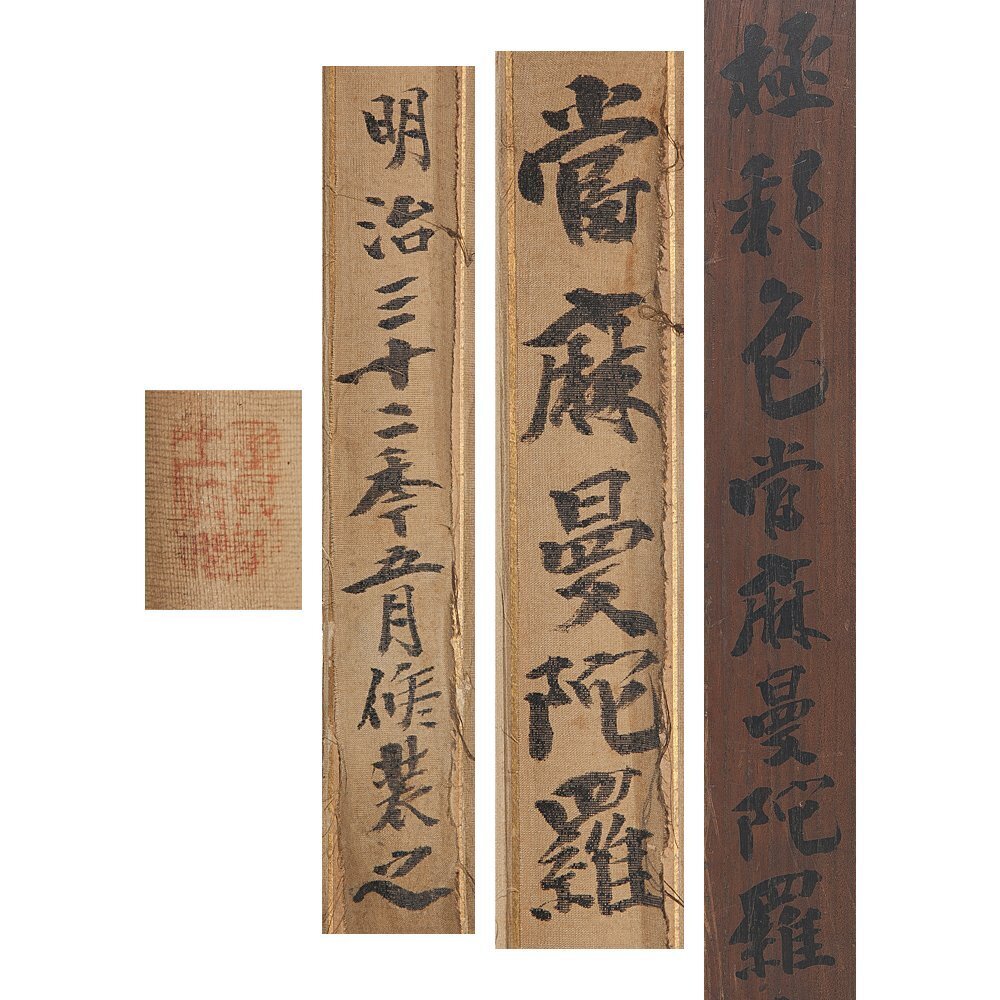 極彩色當麻曼陀羅
當麻曼陀羅
明治三十二季五月修装之